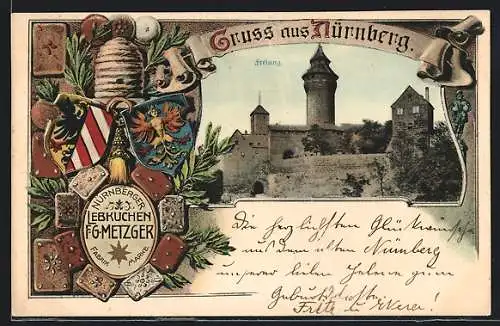 Gruss aus Nürnberg.
Freiung
NÜRNBERGER
LEBKUCHEN
F.G. METZGER
FABRIK MARKE
Die herzlichsten Glückwünsche
aus dem alten Nürnberg
unserer lieben Helene zum
Geburtstage
Fritz u.